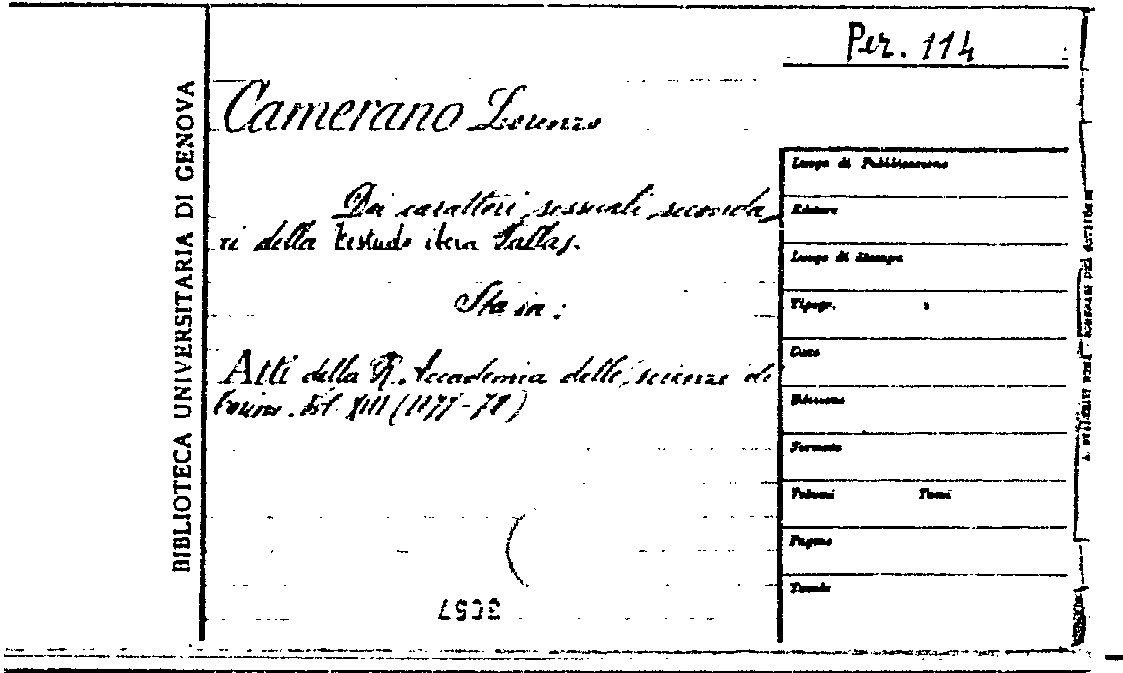 Per. 114
BIBLIOTECA UNIVERSITARIA DI GENOVA
Camerano Lorenzo
Dei caratteri sessuali seconda
ri della testudo ibera Pallas.
Sta in:
Atti della R. Accademia delle scienze di
Torino. Vol. XIII (1877-78)
Luogo di Pubblicazione
Editore
Luogo di stampa
Tipogr.
Data
Edizione
Formato
Volumi Tomi
Pagine
Tavole